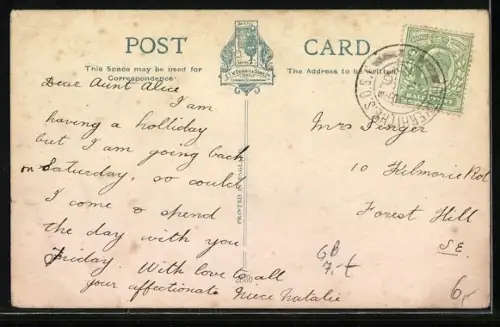 POST CARD
This Space may be used for
Correspondence.
The Address to be written
Dear Aunt Alice
I am
having a holliday
but I am going back
on Saturday, so could
I come & spend
the day with you
Friday. With love to all
your affectionate Niece Natalie
PRINTED IN
Mrs Singer
10 Kilmorie Rd
Forest Hill
S.E.
GB
7,-t
6,-